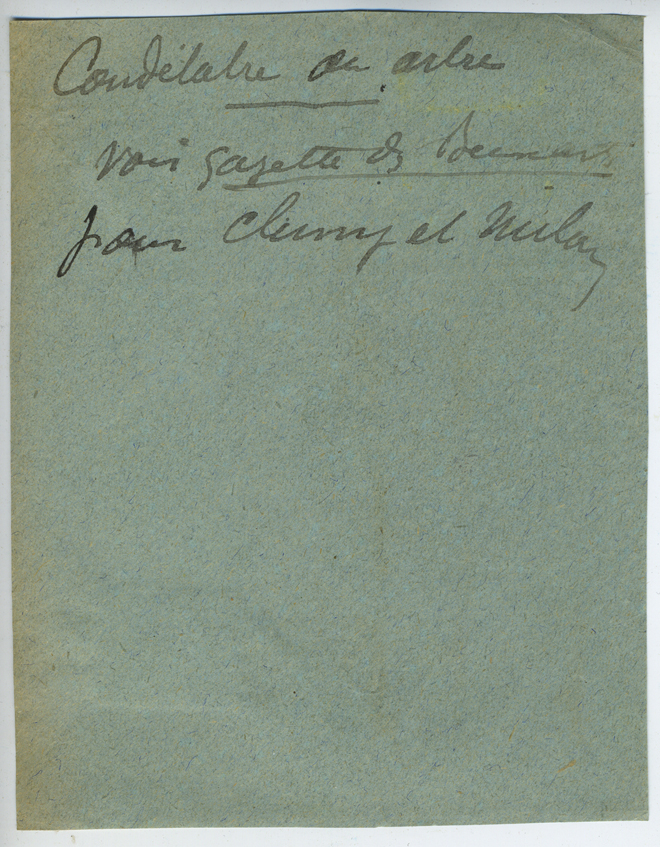 Candélabre ou arbre
voir gazette des Beaux arts
pour Cluny et Milan